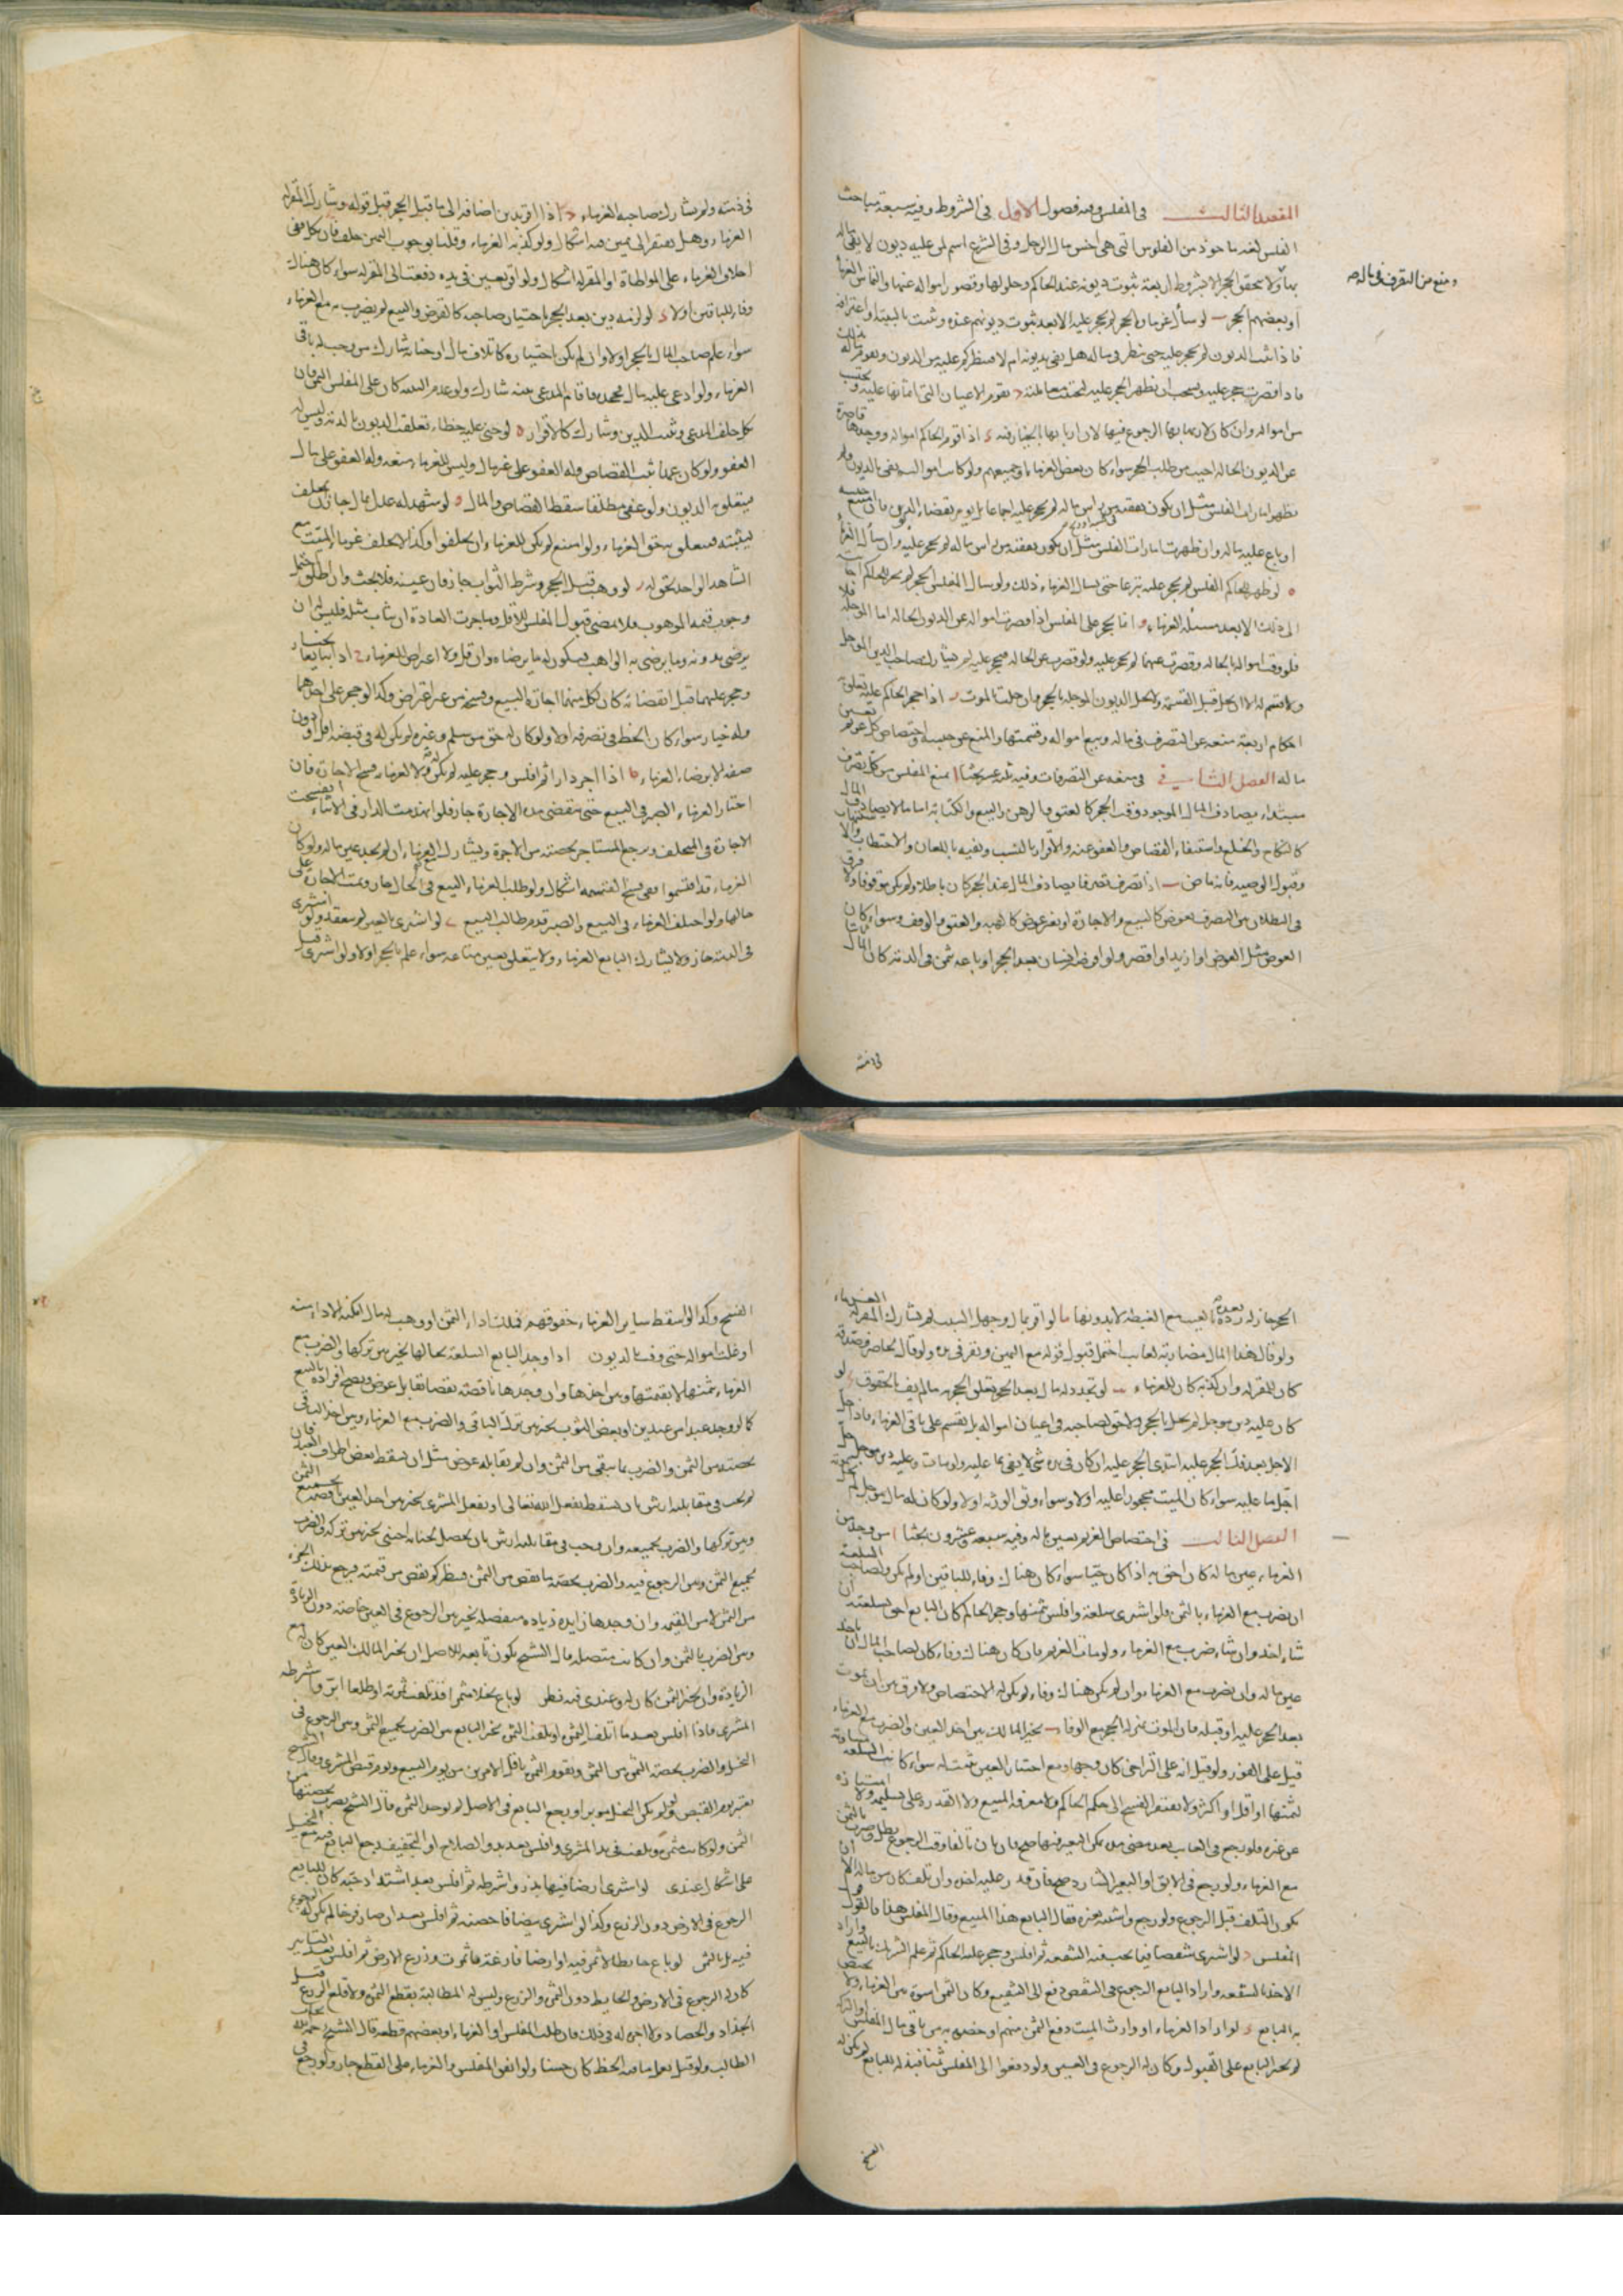 المقصد الثالث في المفلس وفيه فصول الاول في الشروط وفيه سبعة مباحث
ا الفلس لغة ماخوذ من الفلوس التي هي اخس مال الرجل وفي الشرع اسم لمن عليه ديون لا يفي ماله
بها ولا يتحقق الحجر الا بشروط اربعة ثبوت ديونه عند الحاكم وحلولها وقصور امواله عنها والتماس الغرماء
ومنع من التصرف في ماله صح
او بعضهم الحجر ب لو سأل غرماؤه الحجر لم يحجر عليه الا بعد ثبوت ديونهم عنده وثبت بالبينة او اعترافه
فاذا ثبت الديون لم يحجر عليه حتى ينظر في ماله هل يفي بديونه ام لا فينظر كم عليه من الديون ويقوم ماله
فاذا قصرت حجر عليه ويستحب ان يظهر الحجر عليه ليجتنب معاملته د يقوم الاعيان التي اثمانها عليه ويحتسب
من امواله وان كان لاربابها الرجوع فيها لان اربابها بالخيار فيه اذا قوم الحاكم امواله ووجدها قاصرة
عن الديون الحالة اجيب من طلب الحجر سواء كان بعض الغرماء او جميعهم ولو كانت امواله تفي بالديون ولم
يظهر امارات الفلس مثل ان يكون نفقته من راس ماله لم يحجر عليه اجماعا بل يؤمر بقضاء الديون فان امتنع حبسه
او باع عليه ماله وان ظهرت امارات الفلس مثل ان يكون نفقته من راس ماله لم يحجر عليه وان سأل الغرماء
ه لو ظهر للحاكم الفلس لم يحجر عليه تبرعا حتى يسال الغرماء ذلك ولو سال المفلس الحجر لم يحجر الحاكم
الى ذلك الا بعد مسئلة الغرماء و انما يحجر على المفلس اذا قصرت امواله عن الديون الحالة اما المؤجلة فلا
فلو وفت امواله بالحالة وقصرت عنهما لم يحجر عليه ولو قصرت عن الحالة فحجر عليه لم يشارك صاحب الدين المؤجل
ولا يقسم له الا ان يحل قبل القسمة ولا تحل الديون المؤجلة بالحجر وان حلت بالموت ز اذا حجر الحاكم عليه تعلق
احكام اربعة منعه عن التصرف في ماله وبيع امواله وقسمتها والمنع عن حبسه واختصاص كل غريم بعين
ماله الفصل الثاني في منعه عن التصرفات وفيه ثلثة عشر بحثا ا يمنع المفلس من كل تصرف
مبتداء يصادف المال الموجود وقت الحجر كالعتق والرهن والبيع والكتابة اما ما لا يصادف المال
كالنكاح والخلع واستيفاء القصاص والعفو عنه والاقرار بالنسب ونفيه باللعان والاحتطاب
وقبول الوصية فانه ماض ب اذا تصرف تصرفا يصادف المال عند الحجر كان باطلا ولم يكن موقوفا ولا فرق
في البطلان بين التصرف بعوض كالبيع والاجارة او بغير عوض كالهبة والعتق والوقف وسواء كان
العوض مثل المعوض او ازيد او اقصر ولو اقرضه انسان بعد الحجر او باعه بثمن في الذمة كان المال
في ذمته
في ذمته ولم يشارك صاحبه الغرماء اذا اقر بدين اضافه الى ما قبل الحجر قبل قوله وشارك المقر له
الغرماء وهل يفتقر الى يمين فيه اشكال ولو كذبه الغرماء وقلنا بوجوب اليمين حلف فان نكل ففي
احلاف الغرماء على المواطاة او المقر له اشكال ولو اقر بعين في يده دفعت الى المقر له سواء كان هناك
وفاء للباقين اولا د لو لزمه دين بعد الحجر باختيار صاحبه كالقرض والبيع لم يضرب به مع الغرماء
سواء علم صاحب المال بالحجر اولا وان لم يكن باختياره كاتلاف مال او جناية شارك من وجب له باقي
الغرماء ولو ادعي عليه مال فجحده فاقام المدعي بينة شارك ولو عدم البينة كان على المفلس اليمين فان
نكل حلف المدعي وثبت الدين وشارك كالاقرار ه لو جنى عليه خطاء تعلقت الديون بالدية وليس له
العفو ولو كان عمدا ثبت القصاص وله العفو على غير مال وليس للغرماء منعه وله العفو على مال
فيتعلق به الديون ولو عفى مطلقا سقط القصاص والمال و لو شهد له عدل بمال جاز ان يحلف
ليثبته فيتعلق به حق الغرماء ولو امتنع لم يكن للغرماء ان يحلفوا وكذا لا يحلف غرماء الميت مع
الشاهد الواحد بحق له ز لو وهب قبل الحجر وشرط الثواب جاز فان عينه فلا بحث وان اطلق
وجوب قيمة الموهوب فلا مضى قبول المفلس للاقل وما جرت العادة ان يثاب مثله فليس له ان
يرضى بدونه وما يرضى به الواهب فيكون له ما يرضاه وان قل ولا اعتراض للغرماء ح اذا تبايعا بخيار
وحجر عليهما قبل انقضائه كان لكل منهما اجازة البيع وفسخه من غير اعتراض وكذا لو حجر على احدهما
وله خيار سواء كان الحظ في تصرفه اولا ولو كان له حق من سلم وغيره لم يكن له في قبضه اقل او دون
صفة الا برضاء الغرماء ط اذا اجر دارا ثم افلس وحجر عليه لم يكن له ولا للغرماء فسخ الاجارة فان
اختار الغرماء الصبر في البيع حتى تنقضي مدة الاجارة جاز فلو انهدمت الدار في الاثناء انفسخت
الاجارة في المتخلف ورجع المستاجر بحصته من الاجرة ويشارك الغرماء ان لم يجد عين ماله ولو كان
الغرماء قد اقتسموا ففي فسخ القسمة اشكال ولو طلب الغرماء البيع في الحال جاز وبقيت الاجارة على
حالها ولو اختلف الغرماء في البيع والصبر قدم طالب البيع ي لو اشترى بالعين لم ينعقد ولو اشترى
في الذمة جاز ولا يشارك البايع الغرماء ولا يتعلق بعين متاعه سواء علم بالحجر اولا ولو اشترى قبل
الحجر جاز له رده بعده بالعيب مع الغبطة لا بدونها لو اقر بمال وجهل السبب لم يشارك المقر له الغرماء
ولو قال هذا المال مضاربة لغائب احتمل قبول قوله مع اليمين ويقر في يده ولو قال لحاضر فصدقه
كان للمقر له وان كذبه كان للغرماء لو تجدد له مال بعد الحجر تعلق الحجر به ما لم يف بالحقوق لو
كان عليه دين مؤجل لم يحل بالحجر ولا حق لصاحبه في اعيان امواله بل يقسم على باقي الغرماء فاذا حل
الاجل بعد فك الحجر عليه ابتدئ الحجر عليه ان كان في يده شئ لا يفي بما عليه ولو مات وعليه دين مؤجل حل
اجل ما عليه سواء كان الميت محجورا عليه اولا وسواء وثق الورثة اولا ولو كان له مال مؤجل لم يحل
الفصل الثالث في اختصاص الغريم بعين ماله وفيه سبعة عشرون بحثا ا من وجد من
الغرماء عين ماله كان احق به اذا كان حيا سواء كان هناك وفاء للباقين او لم يكن ولصاحب السلعة
ان يضرب مع الغرماء بالثمن فلو اشترى سلعة وافلس بثمنها وحجر الحاكم كان البايع احق بسلعته ان
شاء اخذه وان شاء ضرب مع الغرماء ولو مات الغريم فان كان هناك وفاء كان لصاحب المال ان ياخذ
عين ماله وان يضرب مع الغرماء وان لم يكن هناك وفاء لم يكن له الاختصاص ولا فرق بين ان يموت
بعد الحجر عليه او قبله فان الموت بمنزلة الحجر مع الوفاء ب يخير المالك بين اخذ العين والضرب مع الغرماء
قيل على الفور ولو قيل انه على التراخي كان وجها ومع اختيار العين ثبتت له سواء كانت السلعة مساوية
لثمنها او اقل او اكثر ولا يفتقر الفسخ الى حكم الحاكم ولا معرفة المبيع ولا القدرة على تسليمه ولا امتيازه
عن غيره فلو رجع في الغائب بعد مضي مدة يمكن التغير فيها صح فان بان تالفا وقت الرجوع بطل وضرب بالثمن
مع الغرماء ولو رجع في الابق او البعير الشارد صح فان قدر عليه اخذه وان تلف كان من ماله الا ان
يكون التلف قبل الرجوع ولو رجع واشتبه بغيره فقال البايع هذا المبيع وقال المفلس هذا فالقول قول
المفلس د لو اشترى شقصا فيما يجب فيه الشفعة ثم افلس وحجر عليه الحاكم ثم علم الشريك بالبيع واراد
الاخذ بالشفعة واراد البايع الرجوع في الشقص دفع الى الشفيع وكان الثمن اسوة بين الغرماء ولا يختص
به البايع لو اراد الغرماء او وارث الميت دفع الثمن منهم او خصوه به من باقي مال المفلس او التركة
لم يجبر البايع على القبول وكان له الرجوع في العين ولو دفعوا الى المفلس ثمنا فبذله للبايع لم يكن له
الفسخ
الفسخ وكذا لو اسقط سائر الغرماء حقوقهم فملك اداء الثمن او وهب له مال امكنه الاداء منه
او غلت امواله حتى وفت بالديون اذا وجد البايع السلعة بحالها تخير بين تركها والضرب مع
الغرماء بثمنها لا بقيمتها وبين اخذها وان وجدها ناقصة نقصا تقابل بعوض ويصح افراده بالبيع
كما لو وجد عبدا من عبدين او بعض الثوب تخير بين ترك الباقي والضرب مع الغرماء وبين اخذ الباقي
بحصته من الثمن والضرب بما بقي من الثمن وان لم يقابله عوض مثل ان يسقط بعض اطراف العبد فان
لم يجب في مقابلته ارش بان يسقط بفعل الله تعالى او بفعل المشتري تخير بين اخذ العين بجميع الثمن
وبين تركها والضرب بجميعه وان وجب في مقابلته ارش بان يحصل بجناية اجنبي تخير بين تركه والضرب
بجميع الثمن وبين الرجوع فيه والضرب بحصة ما نقص من الثمن فينظر كم نقص من قيمته فيرجع بذلك الجزء
من الثمن لا من القيمة وان وجدها زايدة زيادة منفصلة تخير بين الرجوع في العين خاصة دون الزيادة
وبين الضرب بالثمن وان كانت متصلة قال الشيخ يكون تابعة للاصل ان تخير المالك العين كان له مع
الزيادة وان تخير الثمن كان له وعندي فيه نظر لو باع نخلا مثمرا قد بلغت ثمرته او طلعا ابر واشترطه
المشتري فاذا افلس بعد ما اتلف الثمن او تلف الثمن تخير البايع بين الضرب بجميع الثمن وبين الرجوع في
النخل والضرب بحصة الثمن من الثمن ويقوم الثمن باقل الامرين من يوم البيع ويوم قبض المشتري وقال الشيخ
يعتبر يوم القبض ولو لم يكن النخل مؤبرا ورجع البايع في الاصل لم يؤخذ الثمن قال الشيخ يضرب بحصتها من
الثمن ولو كانت مثمرة وتلفت في يد المشتري وافلس بعد بدو الصلاح او التجفيف رجع البايع فيه مع النخيل
على اشكال عندي لو اشترى ارضا فيها بذر واشترطه ثم افلس بعد اشتداد حبه كان للبايع
الرجوع في الارض دون الزرع وكذا لو اشترى بيضا فاحضنه ثم افلس بعد ان صار فرخا لم يكن له الرجوع
فيه بل بالثمن لو باع حايطا لا ثمر فيه او ارضا فارغة فاثمرت وزرع الارض ثم افلس بعد التابير
كان له الرجوع في الارض والحايط دون الثمن والزرع وليس له المطالبة بقطع الثمن ولا قلع الزرع قبل
الجذاذ والحصاد ولا اجرة له في ذلك فان طلب المفلس او الغرماء او بعضهم قطعه قال الشيخ رحمه الله يجاب
الطالب ولو قيل يعمل ما فيه الحظ كان حسنا ولو اتفق المفلس والغرماء على القطع جاز ولو رجع في